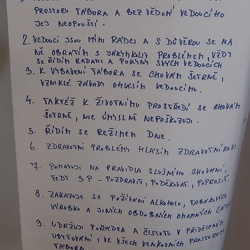 PROSTORU TÁBORA A BEZ VĚDOMÍ VEDOUCÍHO
JEJ NEOPOUŠTÍ.
2. VEDOUCÍ JSOU MÍMI RÁDCI A S DŮVĚROU SE NA
NĚ OBRÁTÍM S JAKÝMKOLIV PROBLÉMEM, VŽDY
SE ŘÍDÍM RADAMI A POKYNY SVÝCH VEDOUCÍCH
3. K VYBAVENÍ TÁBORA SE CHOVÁM ŠETRNĚ,
VZNIKLÉ ZÁVADY OHLÁSÍM VEDOUCÍMU.
4. TAKTÉŽ K ŽIVOTNÍMU PROSTŘEDÍ SE CHOVÁM
ŠETRNĚ, NIC ÚMYSLNĚ NEPOŠKOZUJI.
5. ŘÍDÍM SE REŽIMEM DNE.
6. ZDRAVOTNÍ PROBLÉMY HLÁSÍM ZDRAVOTNÍKOVI
7. PAMATUJI NA PRAVIDLA SLUŠNÉHO CHOVÁNÍ,
TEDY 3P - POZDRAVIT, PODĚKOVAT, POPROSIT.
8. ZAKAZUJE SE POŽÍVÁNÍ ALKOHOLU, TABÁKOVÝCH
VÝROBKŮ A JINÝCH OBDOBNÝCH LÁTEK
9. UDRŽUJI POŘÁDEK A ČISTOTU V PŘIDĚLENÉM
UBYTOVÁNÍ I VE VŠECH VENKOVNÍCH PROSTORÁCH
TÁBORA